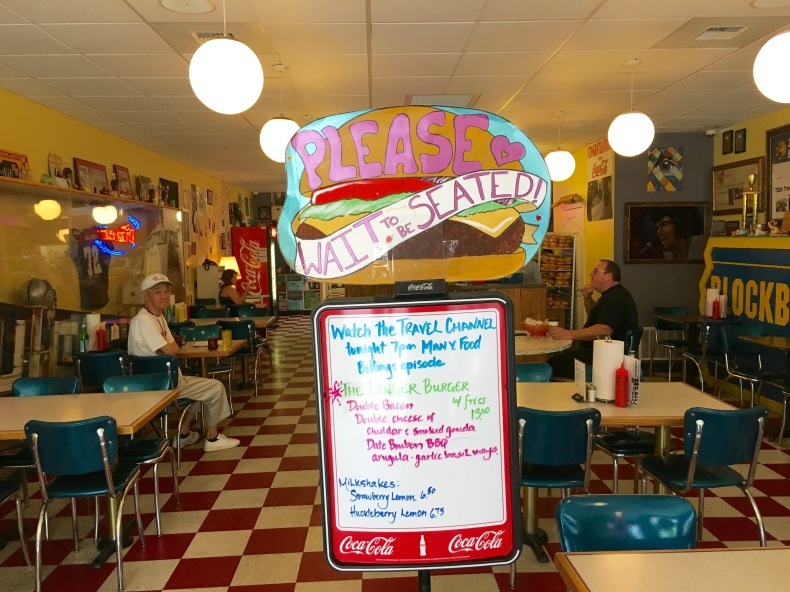 PLEASE
WAIT TO BE SEATED!
Coca-Cola
Watch the TRAVEL CHANNEL
tonight 7pm MAN V. Food
Billings episode
THE DINGER BURGER
Double Bacon w/ fries
Double cheese of 13.00
cheddar & smoked gouda
Date Bourbon BBQ
arugula - garlic basil mayo
Milkshakes:
Strawberry Lemon 6.50
Huckleberry Lemon 6.75
Coca-Cola Coca-Cola
Coca-Cola
Coca-Cola
BLOCKB